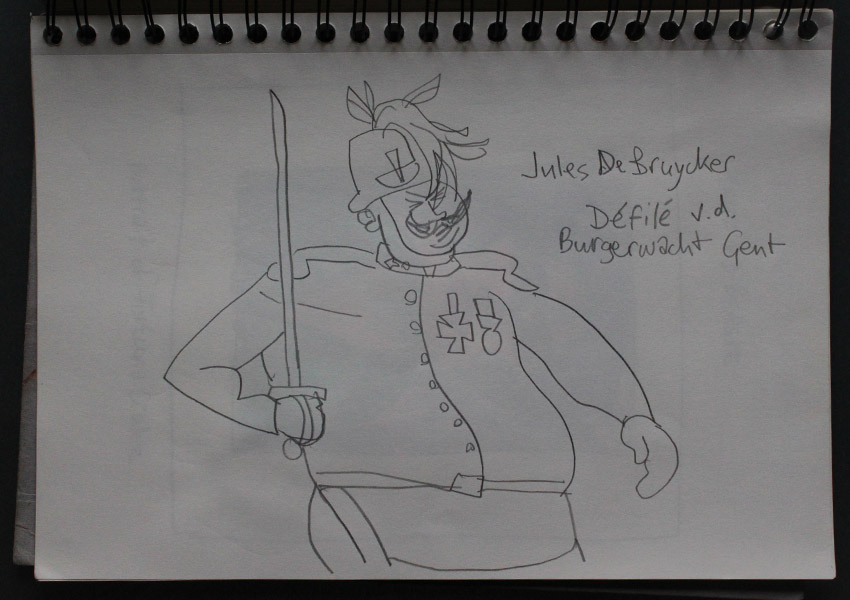 Jules De Bruycker
Défilé v.d.
Burgerwacht Gent